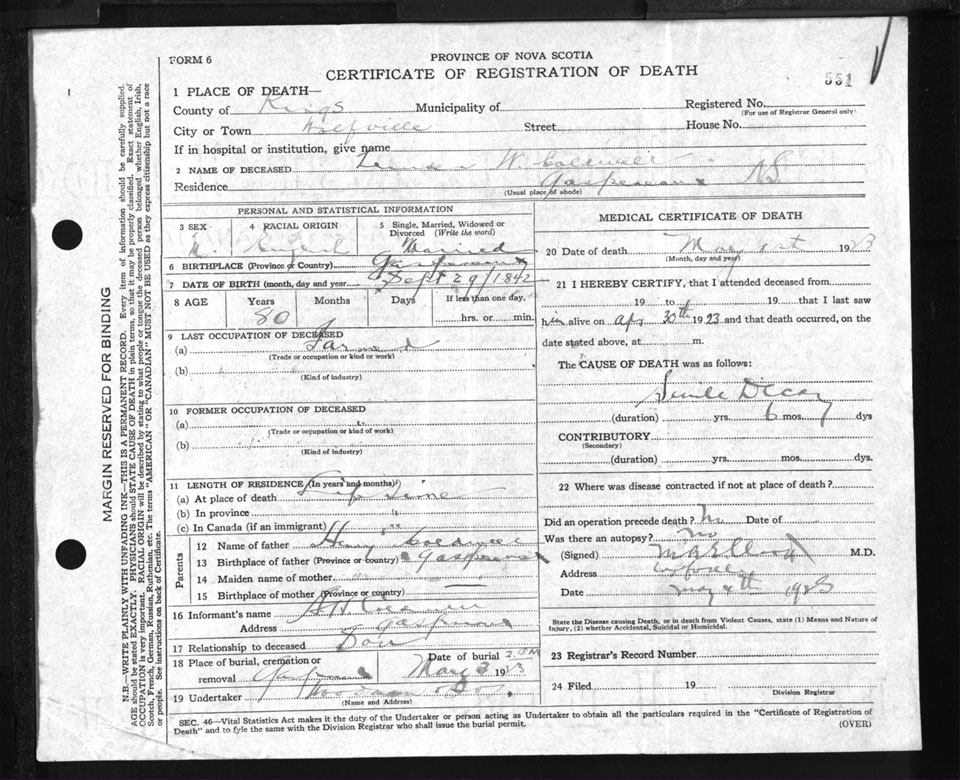 FORM 6
PROVINCE OF NOVA SCOTIA
CERTIFICATE OF REGISTRATION OF DEATH
551
1 PLACE OF DEATH—
County of Kings Municipality of Registered No.
(For use of Registrar General only)
City or Town Wolfville Street House No.
If in hospital or institution, give name
2 NAME OF DECEASED W. Coldwell
Residence Gaspereaux NS
(Usual place of abode)
PERSONAL AND STATISTICAL INFORMATION
3 SEX 4 RACIAL ORIGIN 5 Single, Married, Widowed or Divorced (Write the word)
M. English Married
6 BIRTHPLACE (Province or Country) Gaspereaux
7 DATE OF BIRTH (month, day and year) Sept 29/1842
8 AGE Years Months Days If less than one day,
80 hrs. or min.
9 LAST OCCUPATION OF DECEASED
(a) Farmer
(Trade or occupation or kind or work)
(b)
(Kind of industry)
10 FORMER OCCUPATION OF DECEASED
(a)
(Trade or occupation or kind of work)
(b)
(Kind of industry)
11 LENGTH OF RESIDENCE (In years and months)
(a) At place of death Life time
(b) In province "
(c) In Canada (if an immigrant) "
Parents
12 Name of father Henry Coldwell
13 Birthplace of father (Province or country) Gaspereau
14 Maiden name of mother
15 Birthplace of mother (Province or country)
16 Informant's name Coldwell
Address Gaspereau
17 Relationship to deceased Son
18 Place of burial, cremation or removal Gaspereau Date of burial 2 P.M. May 3 1923
19 Undertaker Woodman
(Name and Address)
MEDICAL CERTIFICATE OF DEATH
20 Date of death May 1st 1923
(Month, day and year)
21 I HEREBY CERTIFY, that I attended deceased from
19 to 19 that I last saw
him alive on Apr 30th 1923 and that death occurred, on
date stated above, at m.
The CAUSE OF DEATH was as follows:
Senile Decay
(duration) yrs. 6 mos. dys
CONTRIBUTORY
(Secondary)
(duration) yrs. mos. dys.
22 Where was disease contracted if not at place of death?
Did an operation precede death? No Date of
Was there an autopsy? No
(Signed) M.D.
Address Wolfville
Date May 4th 1923
State the Disease causing Death, or in death from Violent Causes, state (1) Means and Nature of
Injury, (2) whether Accidental, Suicidal or Homicidal.
23 Registrar's Record Number
24 Filed 19
Division Registrar
SEC. 46—Vital Statistics Act makes it the duty of the Undertaker or person acting as Undertaker to obtain all the particulars required in the "Certificate of Registration of
Death" and to fyle the same with the Division Registrar who shall issue the burial permit.
(OVER)
MARGIN RESERVED FOR BINDING
N.B.—WRITE PLAINLY WITH UNFADING INK—THIS IS A PERMANENT RECORD. Every item of information should be carefully supplied.
AGE should be stated EXACTLY. PHYSICIANS should STATE CAUSE OF DEATH in plain terms, so that it may be properly classified. Exact statement of
OCCUPATION is very important. RACIAL ORIGIN will be described by stating to what people or tongue the deceased person belonged whether English, Irish,
Scotch, French, German, Russian, Ruthenian, etc. The terms "AMERICAN" OR "CANADIAN" MUST NOT BE USED as they express citizenship but not a race
or people. See instructions on back of Certificate.